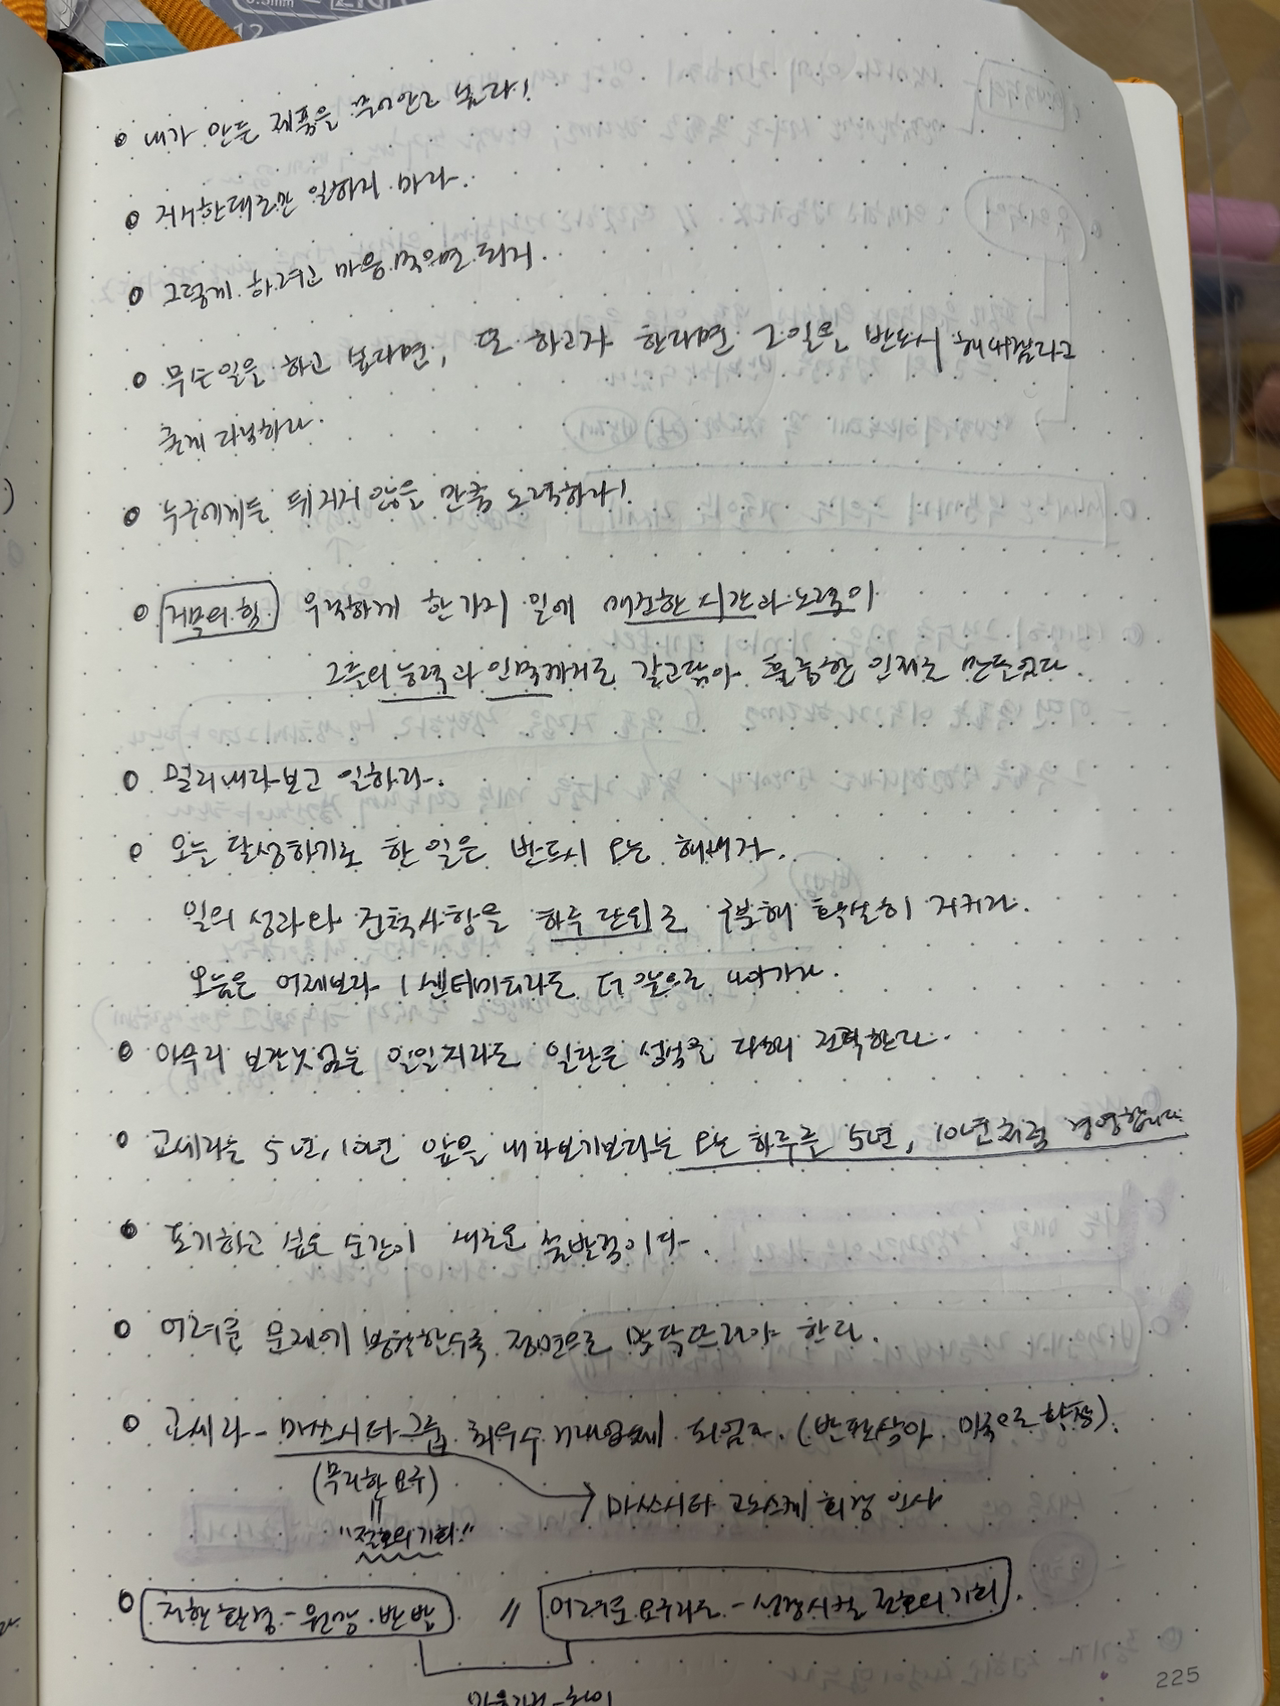 내가 만든 제품을 끌어안고 보라!
지시한대로만 일하지 마라.
그렇게 하려고 마음 먹으면 되지.
무슨일을 하고 보다면, 또 하고자 한다면 그일을 반드시 해내겠다고
굳게 다짐하라.
누구에게든 뒤지지 않을 만큼 노력하라!
거목의 힘 우직하게 한가지 일에 매진한 시간과 노력이
그들의 능력과 인격까지도 갈고닦아 훌륭한 인재로 만들었다.
멀리 내다보고 일하라.
오늘 달성하기로 한 일은 반드시 오늘 해내자.
일의 성과와 진척사항을 하루 단위로 구분해 확실히 지켜라.
오늘은 어제보다 1센티미터라도 더 앞으로 나아가라.
아무리 보잘것없는 일일지라도 일단은 성심을 다해 전력한다.
교세라는 5년, 10년 앞을 내다보기보다는 오늘 하루를 5년, 10년처럼 경영합니다
포기하고 싶은 순간이 새로운 출발점이다.
어려운 문제에 봉착할수록 정면으로 맞닥뜨려야 한다.
교세라 - 마쓰시타그룹 최우수 거래업체 되었고. (발판삼아 미국으로 확장).
(무리한 요구)
마쓰시타 고노스케 회장 인사
"절호의 기회"
환경 - 원망 · 반발 // 어려운 요구라도 - 성장시킬 절호의 기회.
225